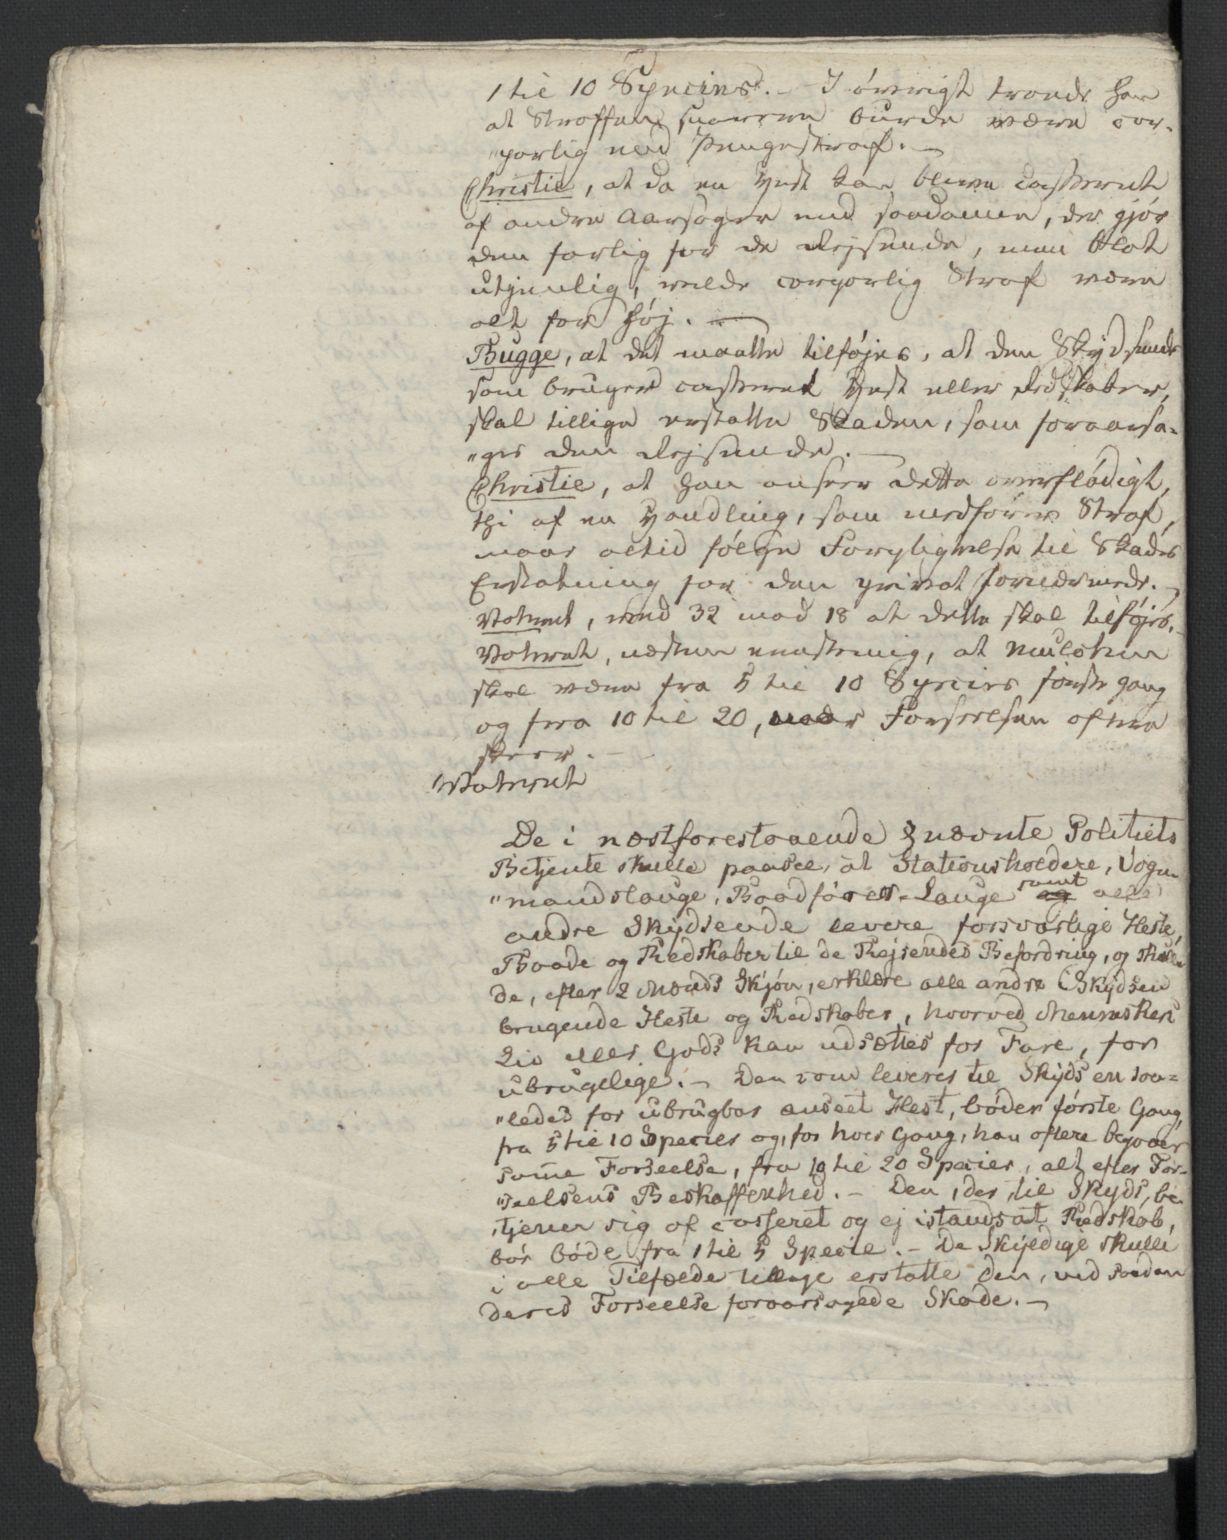 1 til 10 Species. - I øvrigt troede han
at Straffen snarere burde være cor-
"porlig end Pengestraf. -
Christie, at da en Hest kan blive casseret
af andre Aarsager end saadanne, der gjør
den farlig for de Rejsende, men blot
utjenlig, vilde corporlig Straf være
alt for høj. -
Bugge, at det maatte tilføjes, at den Skydsende
som bruger casseret Hest eller Redskaber,
skal tillige erstatte Skaden, som foraarsa-
"ges den Rejsende. -
Christie, at han anseer dette overflødigt,
thi af en Handling, som medfører Straf,
maae altid følge Forpligtelse til Skades
Erstatning for den privat fornærmede. -
Voteret, med 32 mod 18 at dette skal tilføjes. -
Voteret, næsten eenstemmig, at Mulcten
skal være fra 5 til 10 Species første Gang
og fra 10 til 20, naar Forseelsen oftere
skeer. -
Voteret
De i næstforestaaende § nævnte Politiets
Betjente skulle paasee, at Stationsholdere, Vogn-
"mandslauge, Baadfører-Lauge samt alle
andre Skydsende levere forsvarlige Heste,
Baade og Redskaber til de Rejsendes Befordring, og skulle
de, efter 2 Mænds Skjøn, erklære alle andre Skydsen
brugende Heste og Redskaber, hvorved Menneskers
Liv eller Gods kan udsættes for Fare, for
ubrugelige. - Den som leverer til Skyds en saa-
"ledes for ubrugbar anseet Hest, bøder første Gang,
fra 5 til 10 Species og, for hver Gang, han oftere begaaer
samme Forseelse, fra 10 til 20 Species, alt efter For-
"seelsens Beskaffenhed. - Den, der, til Skyds, be-
tjener sig af casseret og ej istandsat Redskab,
bør bøde fra 1 til 5 Specie. - De Skyldige skulle
i alle Tilfælde tillige erstatte den, ved saadan
deres Forseelse foraarsagede Skade. -